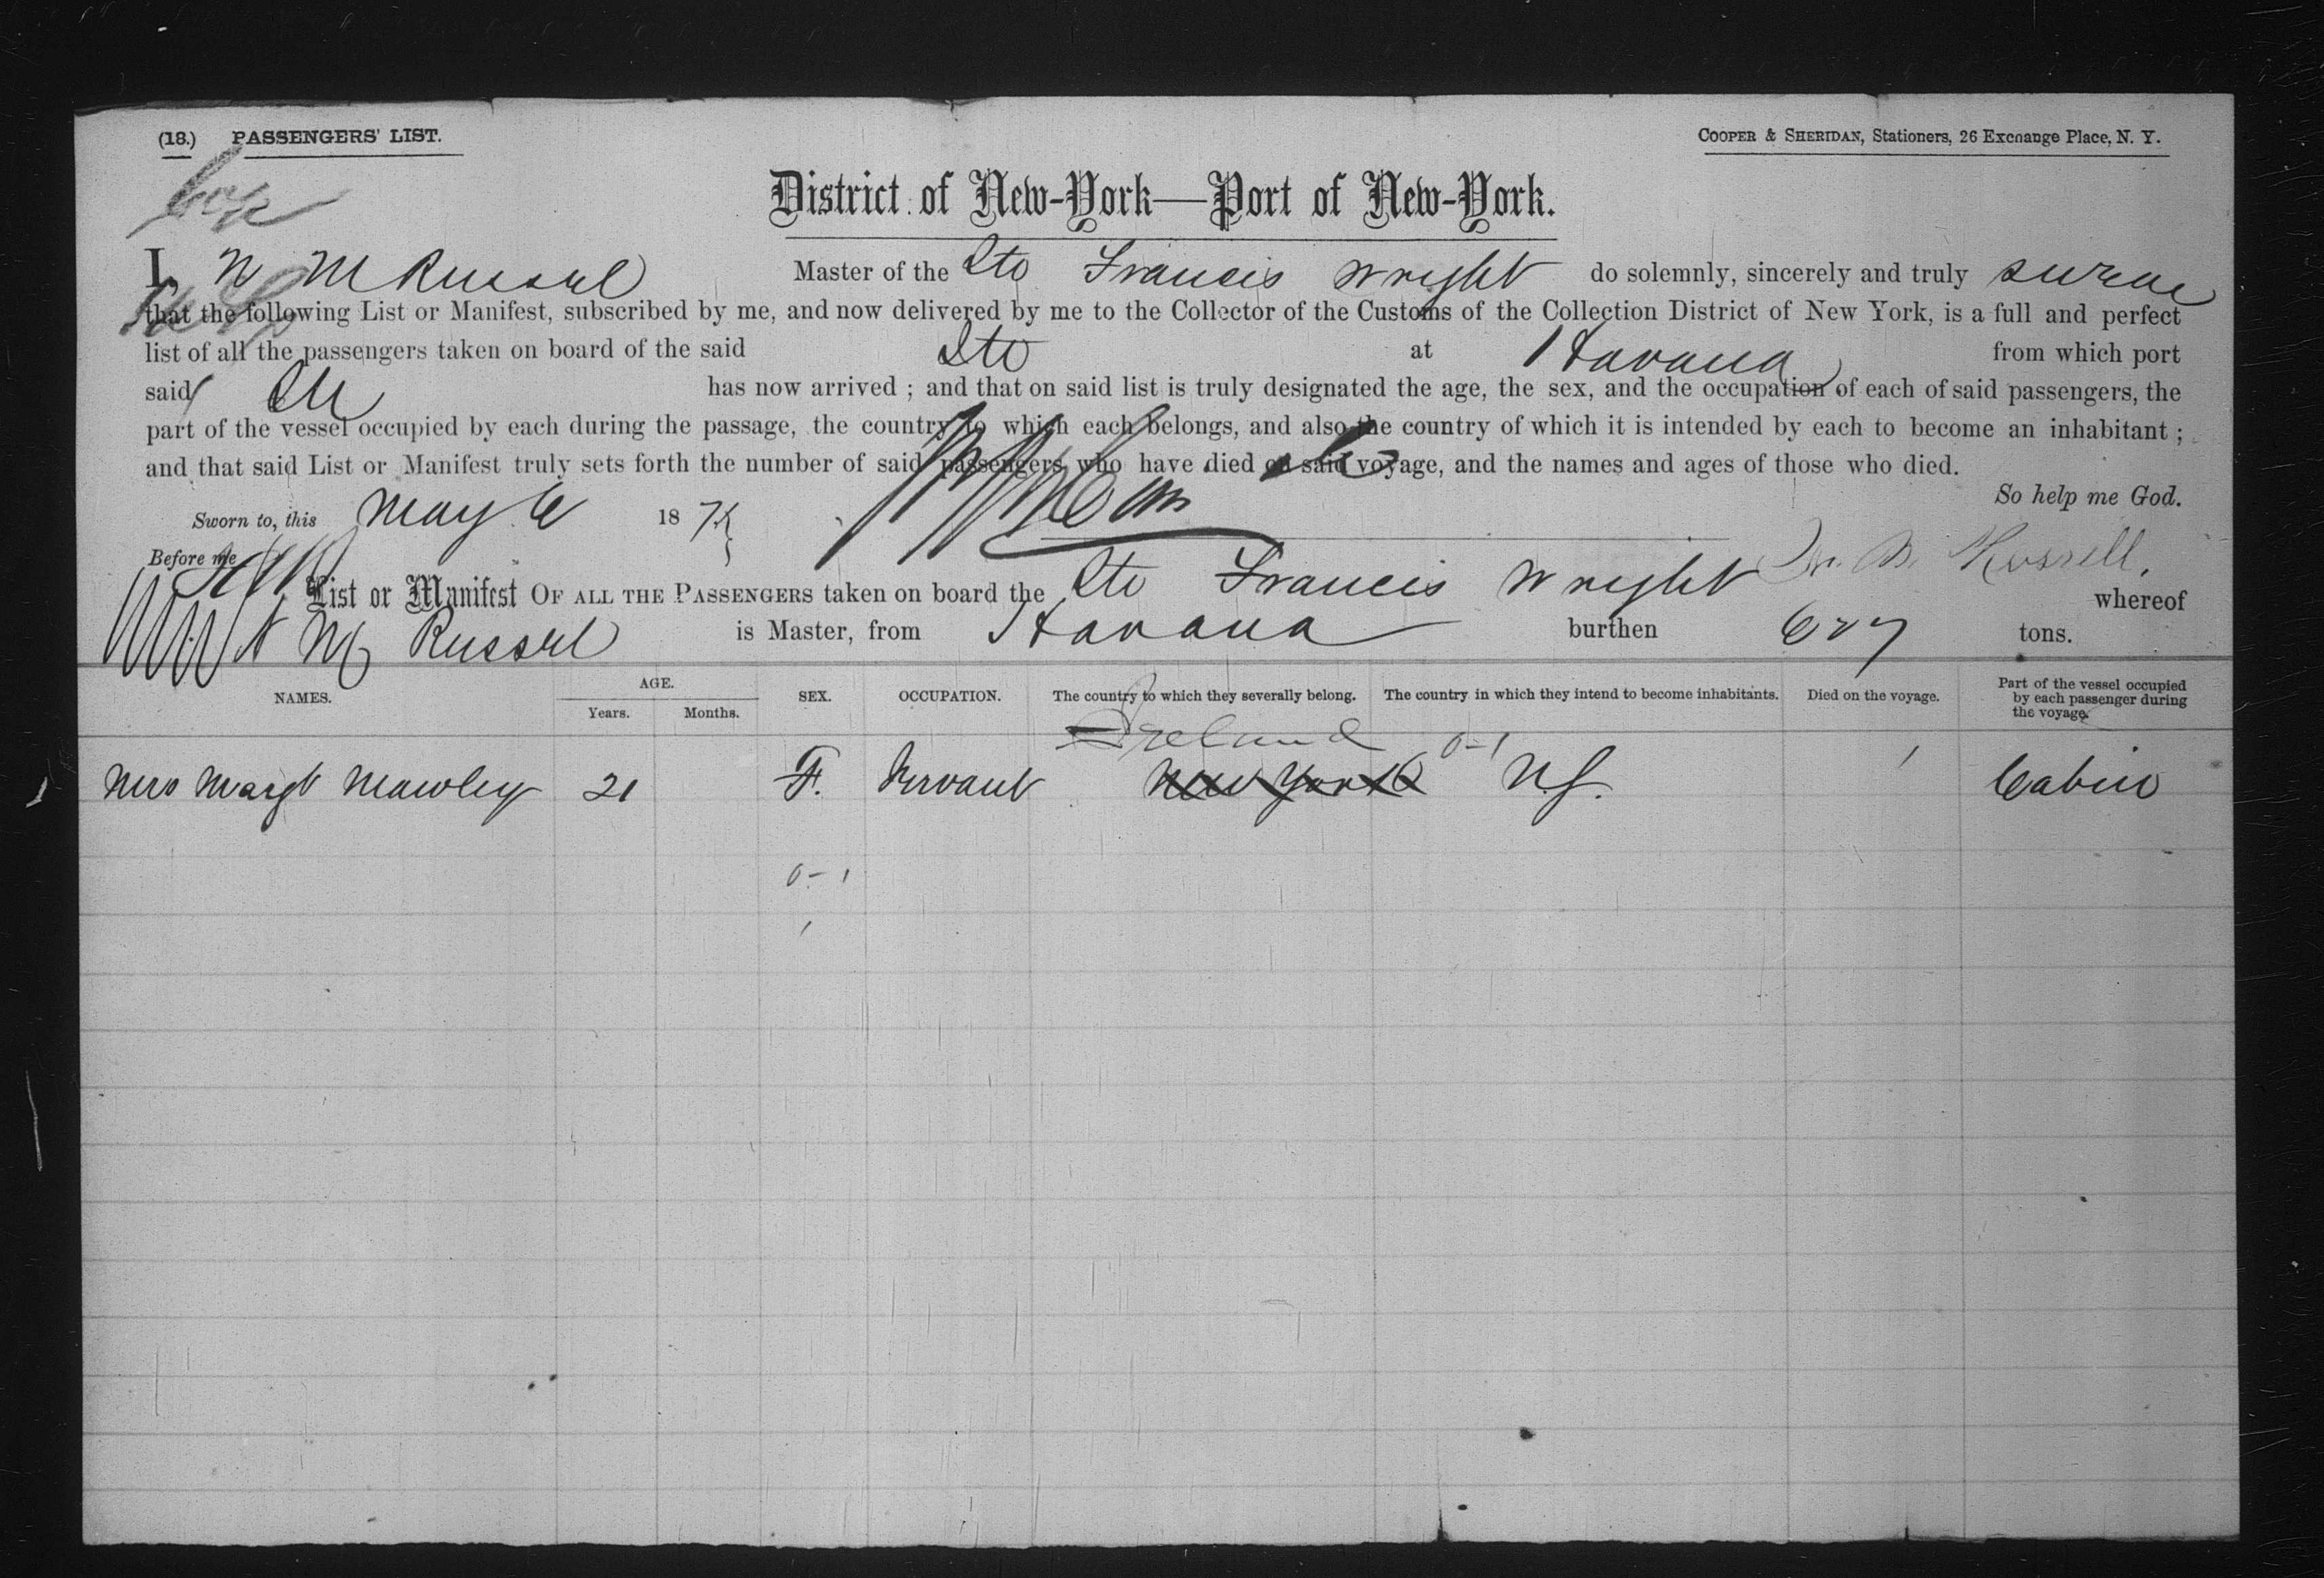 (18.) PASSENGERS' LIST. COOPER & SHERIDAN, Stationers, 26 Exchange Place, N. Y.
District of New-York—Port of New-York.
I, N M Russel Master of the Str Francis Wright do solemnly, sincerely and truly swear
that the following List or Manifest, subscribed by me, and now delivered by me to the Collector of the Customs of the Collection District of New York, is a full and perfect
list of all the passengers taken on board of the said Str at Havana from which port
said Str has now arrived ; and that on said list is truly designated the age, the sex, and the occupation of each of said passengers, the
part of the vessel occupied by each during the passage, the country to which each belongs, and also the country of which it is intended by each to become an inhabitant ;
and that said List or Manifest truly sets forth the number of said passengers who have died on said voyage, and the names and ages of those who died.
So help me God.
Sworn to, this May 6 187
Before me
List or Manifest OF ALL THE PASSENGERS taken on board the Str Francis Wright M. Russell. whereof
N M Russel is Master, from Havana burthen 627 tons.
NAMES. AGE. Years. Months. SEX. OCCUPATION. The country to which they severally belong. The country in which they intend to become inhabitants. Died on the voyage. Part of the vessel occupied by each passenger during the voyage.
Ireland 0-1
Mrs Margt Mawley 21 F. Servant New York N.Y. Cabin
0-1